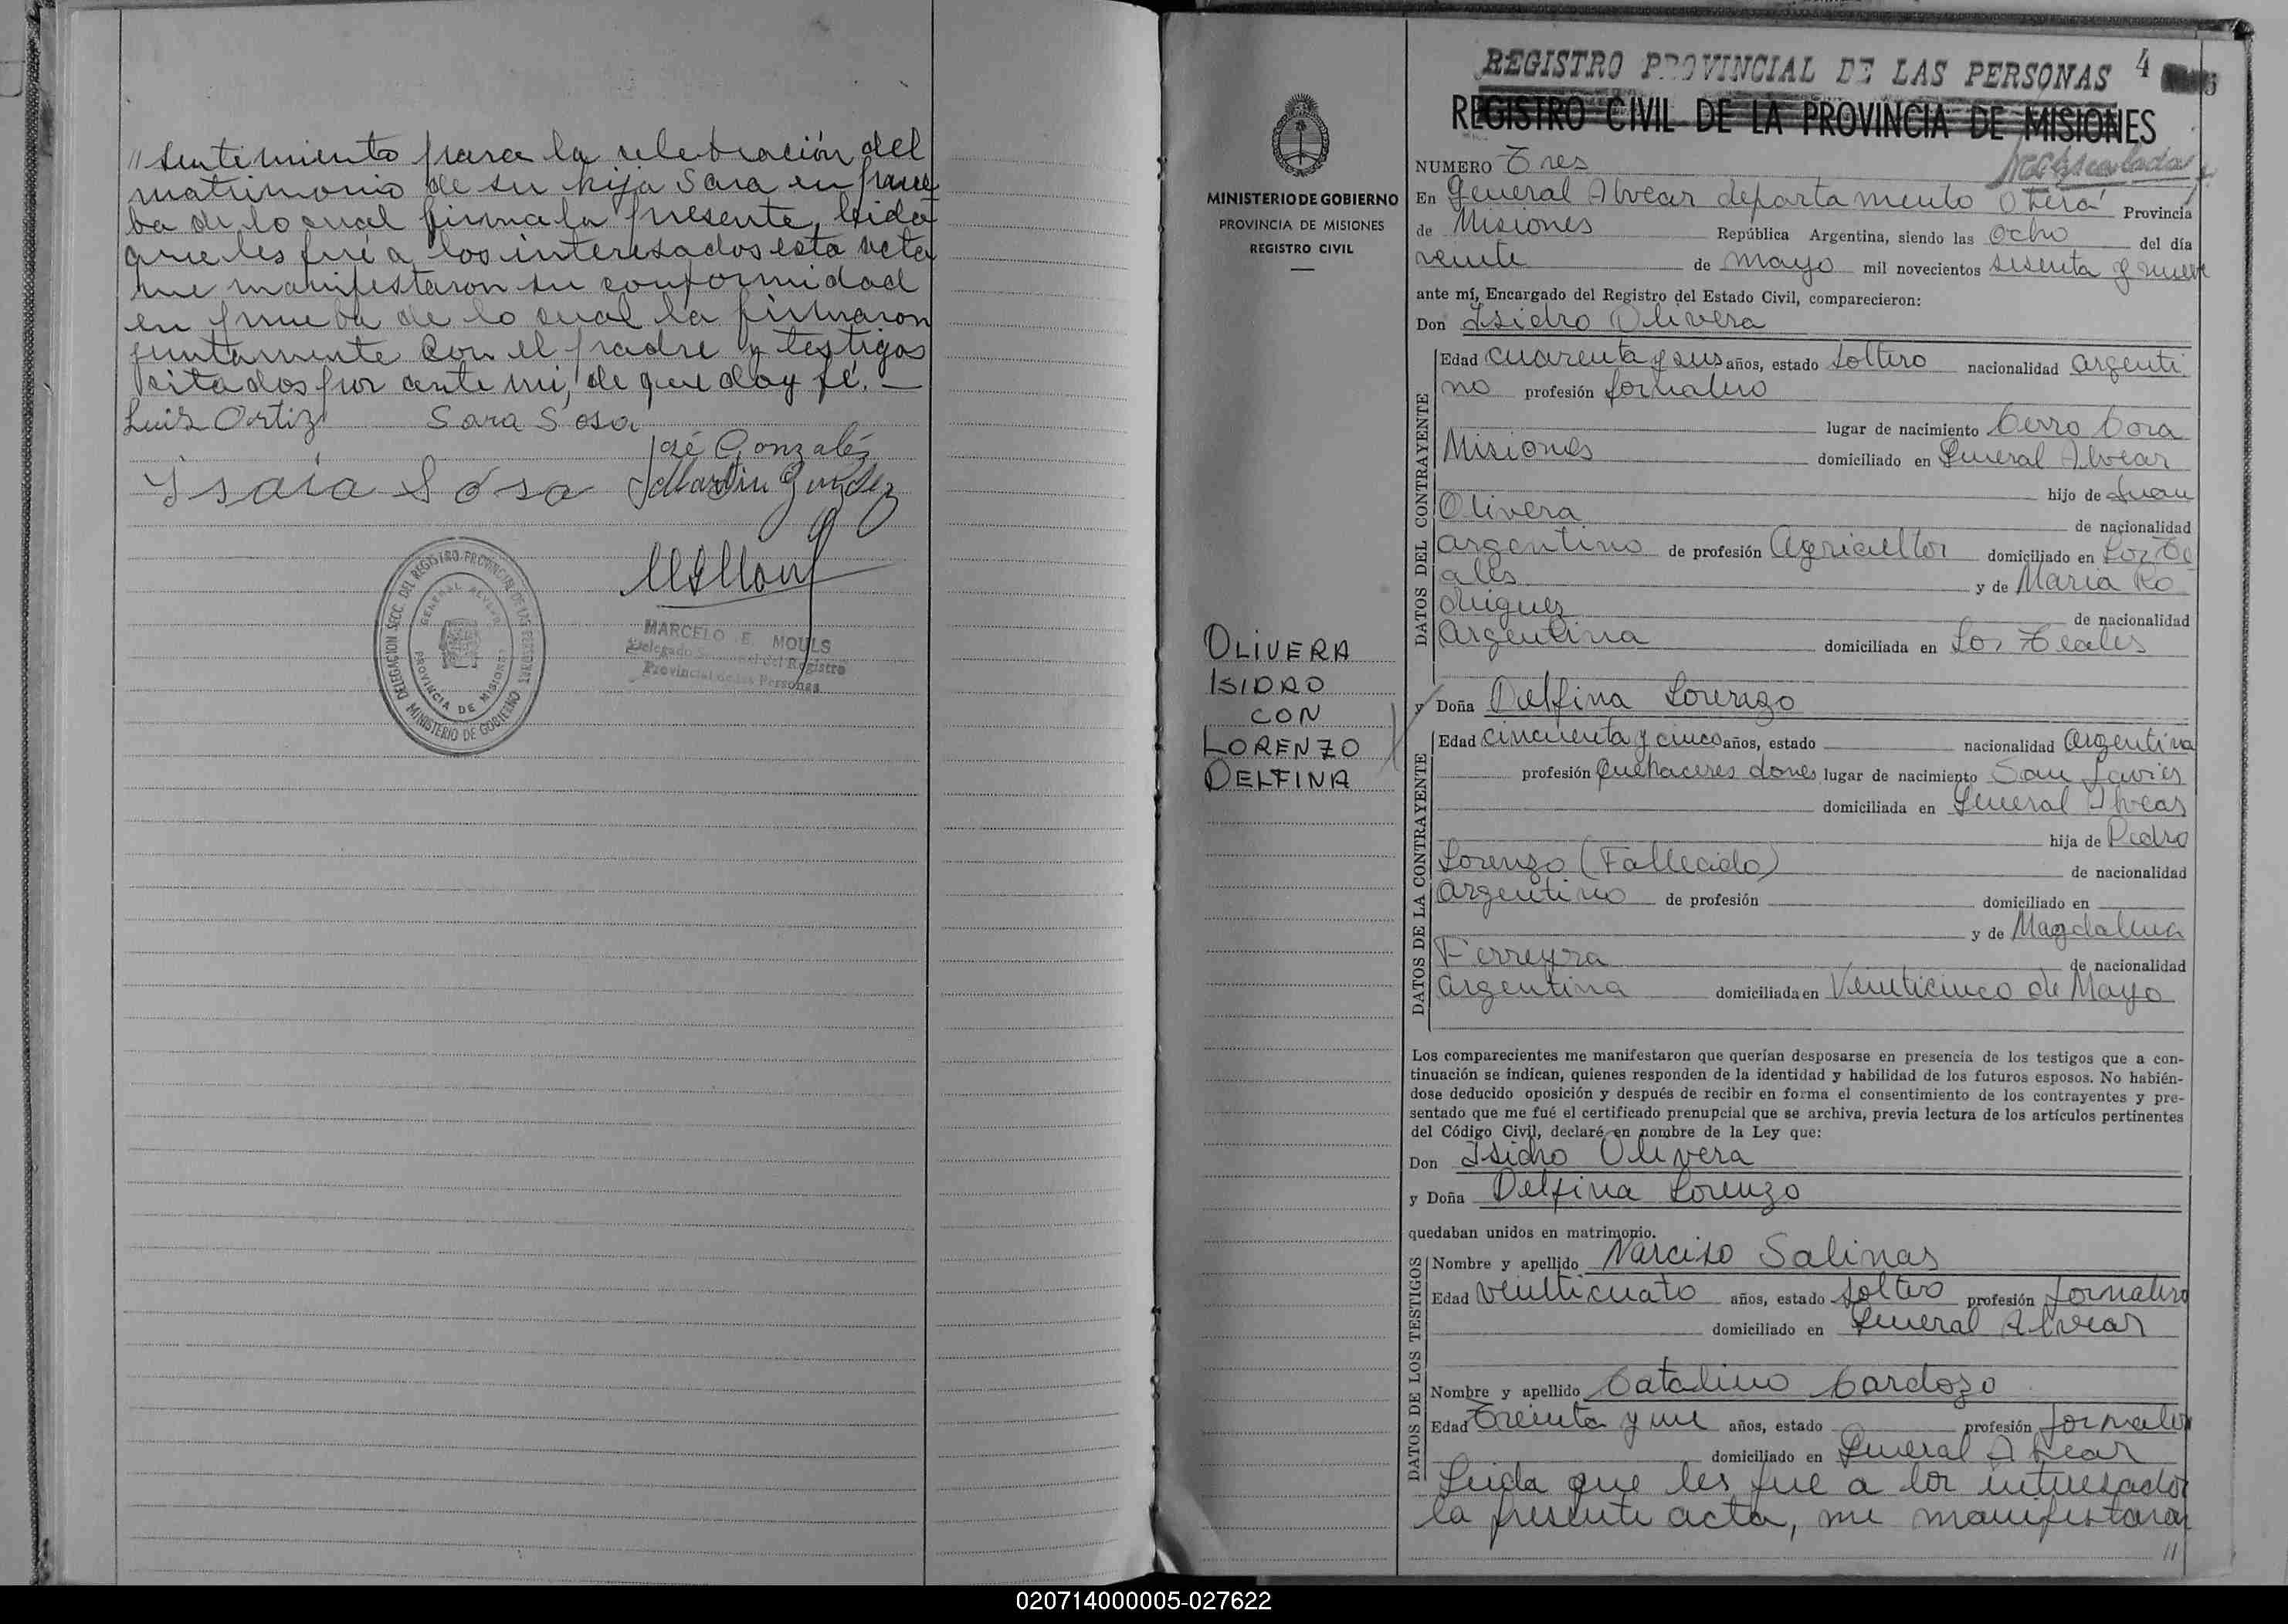 // sentimiento para la celebración del
matrimonio de su hija Sara en prue
ba de lo cual firma la presente, leida
que les fué a los interesados esta acta
me manifestaron su conformidad
en prueba de lo cual la firmaron
juntamente con el padre y testigos
citados por ante mi, de que doy fé. —
Luis Ortiz Sara Sosa
José Gonzaléz
Ysaia Sosa Martin
DELEGACION SECC. DEL REGISTRO PROVINCIAL DE LAS PERSONAS
GENERAL ALVEAR
PROVINCIA DE MISIONES
MINISTERIO DE GOBIERNO
MARCELO E. MOULS
Delegado Seccional del Registro
Provincial de las Personas
MINISTERIO DE GOBIERNO
PROVINCIA DE MISIONES
REGISTRO CIVIL
OLIVERA
ISIDRO
CON
LORENZO
DELFINA
REGISTRO PROVINCIAL DE LAS PERSONAS 4
REGISTRO CIVIL DE LA PROVINCIA DE MISIONES
NUMERO Tres
En General Alvear departamento Oberá Provincia
de Misiones República Argentina, siendo las Ocho del día
veinte de mayo mil novecientos sesenta y nueve
ante mí, Encargado del Registro del Estado Civil, comparecieron:
Don Isidro Olivera
DATOS DEL CONTRAYENTE
Edad cuarenta y seis años, estado soltero nacionalidad argenti
no profesión jornalero
lugar de nacimiento Cerro Cora
Misiones domiciliado en General Alvear
hijo de Juan
Olivera de nacionalidad
argentino de profesión Agricultor domiciliado en Los Te
ales y de Maria Ro
driguez de nacionalidad
Argentina domiciliada en Los Teales
y Doña Delfina Lorenzo
DATOS DE LA CONTRAYENTE
Edad cincuenta y cinco años, estado nacionalidad argentina
profesión Quehaceres domes lugar de nacimiento San Javier
domiciliada en General Alvear
hija de Pedro
Lorenzo (Fallecido) de nacionalidad
argentino de profesión domiciliado en
y de Magdalena
Ferreyra de nacionalidad
argentina domiciliada en Veinticinco de Mayo
Los comparecientes me manifestaron que querían desposarse en presencia de los testigos que a con-
tinuación se indican, quienes responden de la identidad y habilidad de los futuros esposos. No habién-
dose deducido oposición y después de recibir en forma el consentimiento de los contrayentes y pre-
sentado que me fué el certificado prenupcial que se archiva, previa lectura de los artículos pertinentes
del Código Civil, declaré en nombre de la Ley que:
Don Isidro Olivera
y Doña Delfina Lorenzo
quedaban unidos en matrimonio.
DATOS DE LOS TESTIGOS
Nombre y apellido Narciso Salinas
Edad veinticuato años, estado soltero profesión jornalero
domiciliado en General Alvear
Nombre y apellido Catalino Cardozo
Edad Treinta y un años, estado profesión jornalero
domiciliado en General Alvear
Leida que les fue a los interesados
la presente acta, me manifestaron
//
020714000005-027622